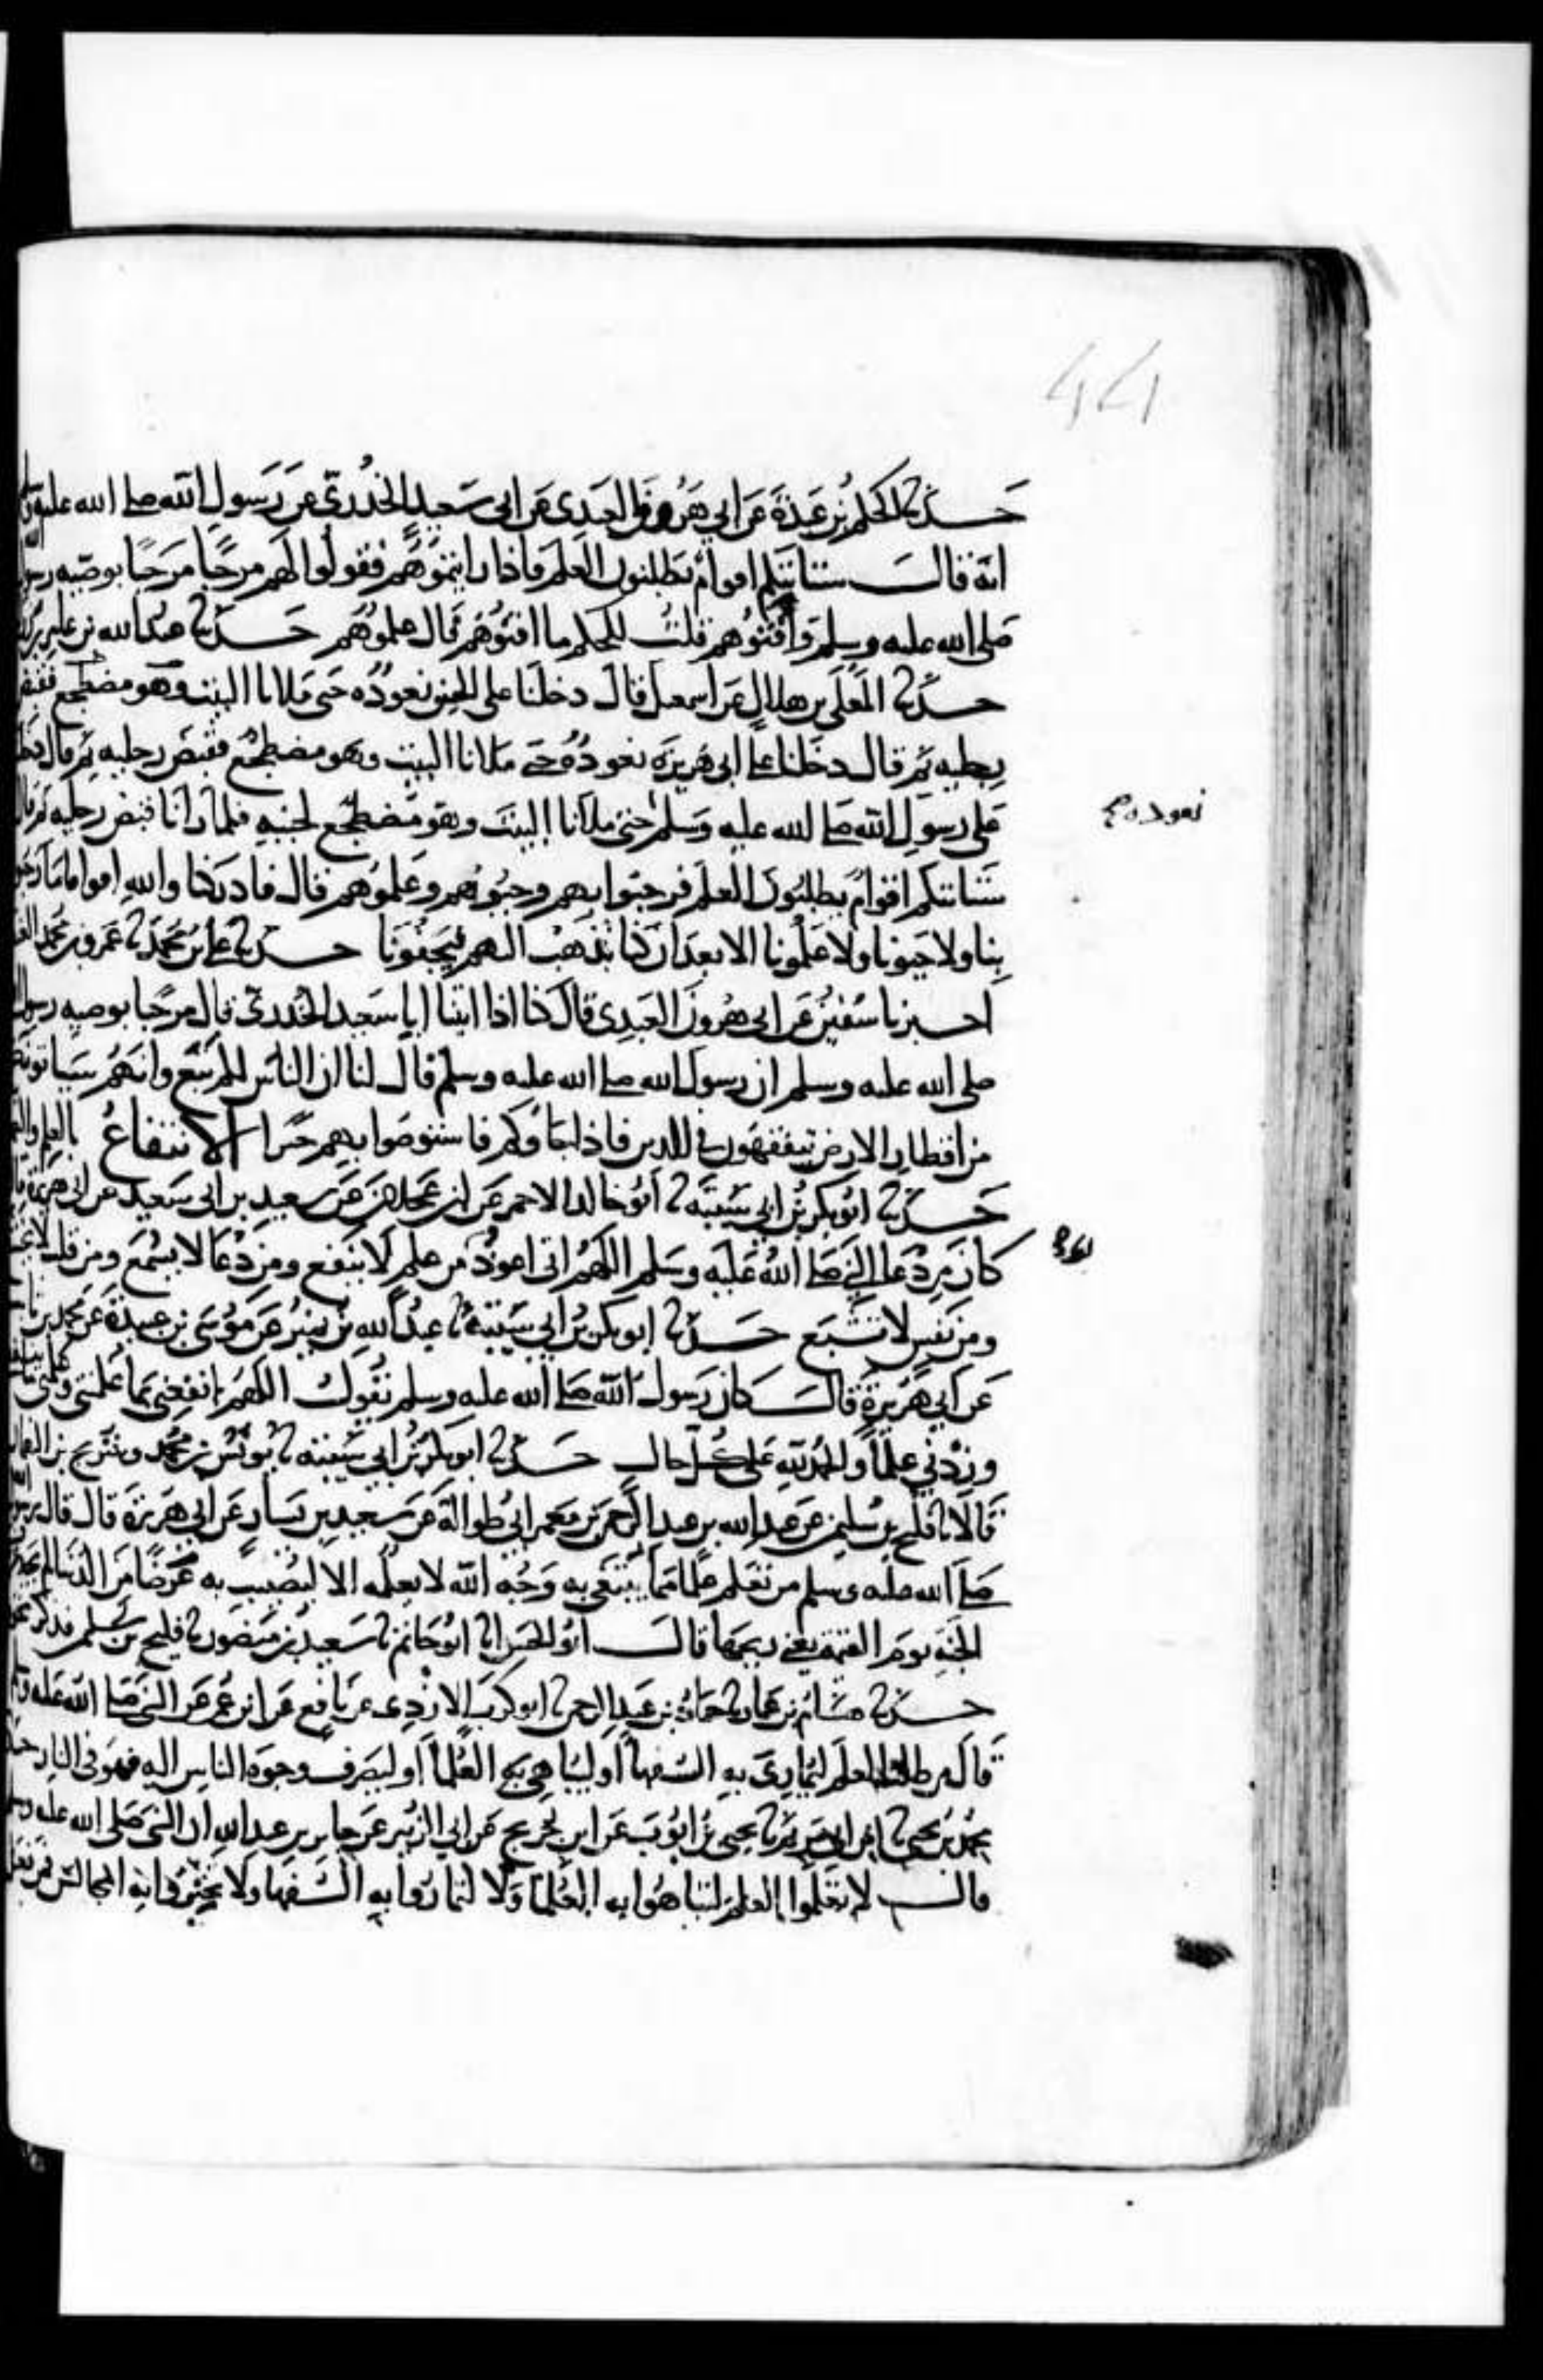 حدثنا الحكم بن عبدة عن ابي هرون العبدي عن ابي سعيد الخدري عن رسول الله صلى الله عليه
انه قال ستاتيكم اقوام يطلبون العلم فاذا رايتموهم فقولوا لهم مرحبا مرحبا بوصية
صلى الله عليه وسلم وأقنوهم قلت للحكم ما اقنوهم قال علموهم حدثنا عبد الله بن عامر بن
حدثنا المعلى بن هلال عن اسمعيل قال دخلنا على الحسن نعوده حتى ملانا البيت وهو مضطجع
رجليه ثم قال دخلنا على ابي هريرة نعوده حتى ملانا البيت وهو مضطجع فقبض رجليه ثم قال
على رسول الله صلى الله عليه وسلم حتى ملانا البيت وهو مضطجع لجنبه فلما رانا قبض رجليه ثم قال
نعوده صح
ستاتيكم اقوام يطلبون العلم فرحبوا بهم وحيوهم وعلموهم قال فادركنا والله اقواما ما
بنا ولا حيونا ولا علمونا الا بعد ان كنا نذهب اليهم فيجفونا حدثنا علي بن محمد نا عمرو بن محمد
اخبرنا سفين عن ابي هرون العبدي قال كنا اذا اتينا ابا سعيد الخدري قال مرحبا بوصية رسول
صلى الله عليه وسلم ان رسول الله صلى الله عليه وسلم قال لنا ان الناس لكم تبع وانهم
من اقطار الارض يتفقهون في الدين فاذا جاوكم فاستوصوا بهم خيرا الانتفاع بالعلم
حدثنا ابو بكر بن ابي شيبة نا ابو خالد الاحمر عن ابن عجلان عن سعيد بن ابي سعيد عن ابي هريرة
كان من دعا النبي صلى الله عليه وسلم اللهم اني اعوذ من علم لا ينفع ومن دعا لا يسمع ومن قلب لا
ومن نفس لا تشبع حدثنا ابو بكر بن ابي شيبة نا عبد الله بن نمير عن موسى بن عبيدة عن محمد بن
عن ابي هريرة قال كان رسول الله صلى الله عليه وسلم يقول اللهم انفعني بما علمتني
وزدني علما والحمد لله على كل حال حدثنا ابو بكر بن ابي شيبة نا يونس بن محمد وشريح بن
قالا نا فليح بن سليمن عن عبد الله بن عبد الرحمن بن معمر ابي طوالة عن سعيد بن يسار عن ابي هريرة قال قال
صلى الله عليه وسلم من تعلم علما مما يبتغى به وجه الله لا يعلمه الا ليصيب به عرضا من الدنيا لم
الجنة يوم القيمة يعني ريحها قال ابو الحسن انا ابو حاتم نا سعيد بن منصور نا فليح بن
حدثنا هشام بن عمار نا حماد بن عبد الرحمن نا ابو كرب الازدي عن نافع عن ابن عمر عن النبي صلى الله عليه
قال من طلب العلم ليماري به السفها او ليباهي به العلما او ليصرف وجوه الناس اليه فهو في النار
محمد بن يحيى نا ابن ابي مريم نا يحيى بن ايوب عن ابن جريج عن ابي الزبير عن جابر بن عبد الله ان النبي صلى الله عليه
قال لا تعلموا العلم لتباهوا به العلما ولا لتماروا به السفها ولا تخيروا به المجالس